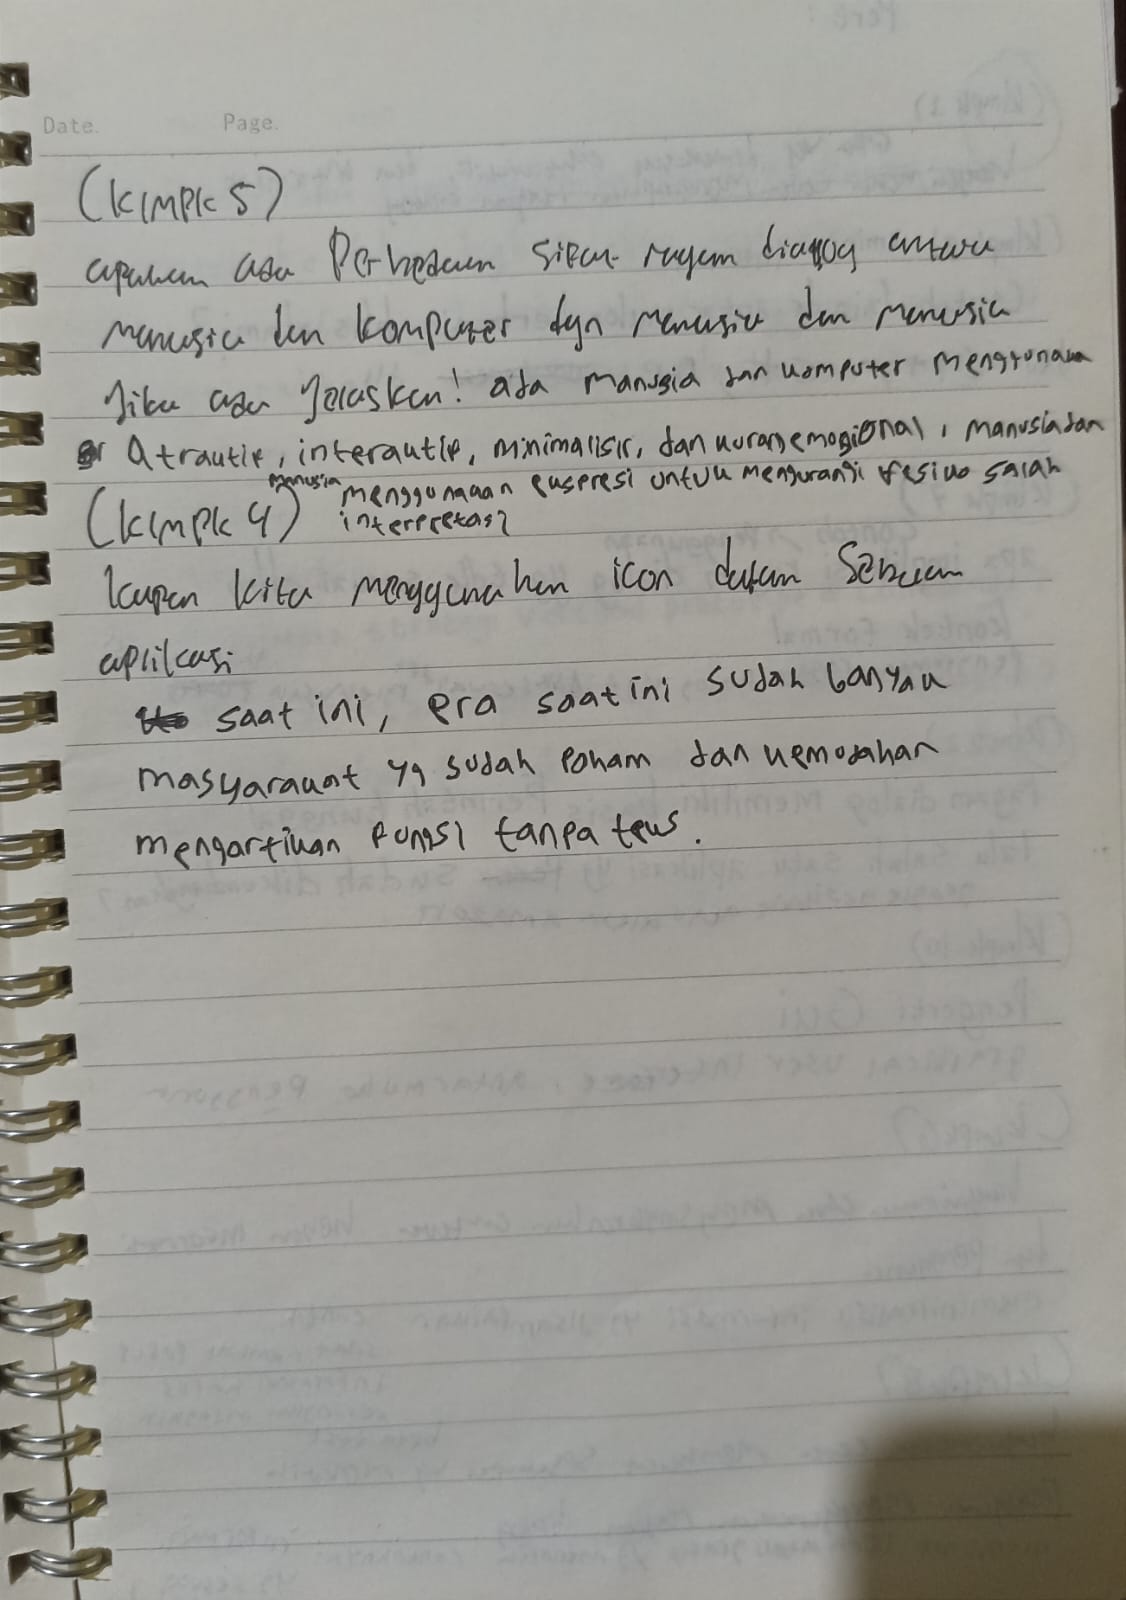 Date. Page.
(Klmpk 5)
apakah ada Perbedaan sifat ragam dialog antara
manusia dan komputer dgn manusia dan manusia
Jika ada Jelaskan! ada manusia dan komputer menggunaka
Atraktif, interaktif, minimalisir, dan kurang emosional, manusia dan
manusia menggunakan ekspresi untuk mengurangi resiko salah
interpretasi
(Klmpk 4)
kapan kita menggunakan icon dalam Sebuah
aplikasi
saat ini, era saat ini sudah banyak
masyarakat yg sudah paham dan kemudahan
mengartikan fungsi tanpa teks.